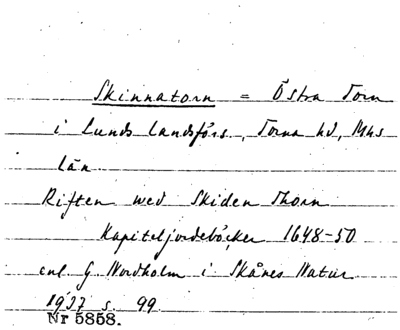 Skinnatorn = Östra Torn
i Lunds landsförs., Torna hd, Mhs
län
Riften wed Skiden Thorn
Kapiteljordeböcker 1648-50
enl G. Nordholm i Skånes Natur
1937 s. 99.
Nr 5858.